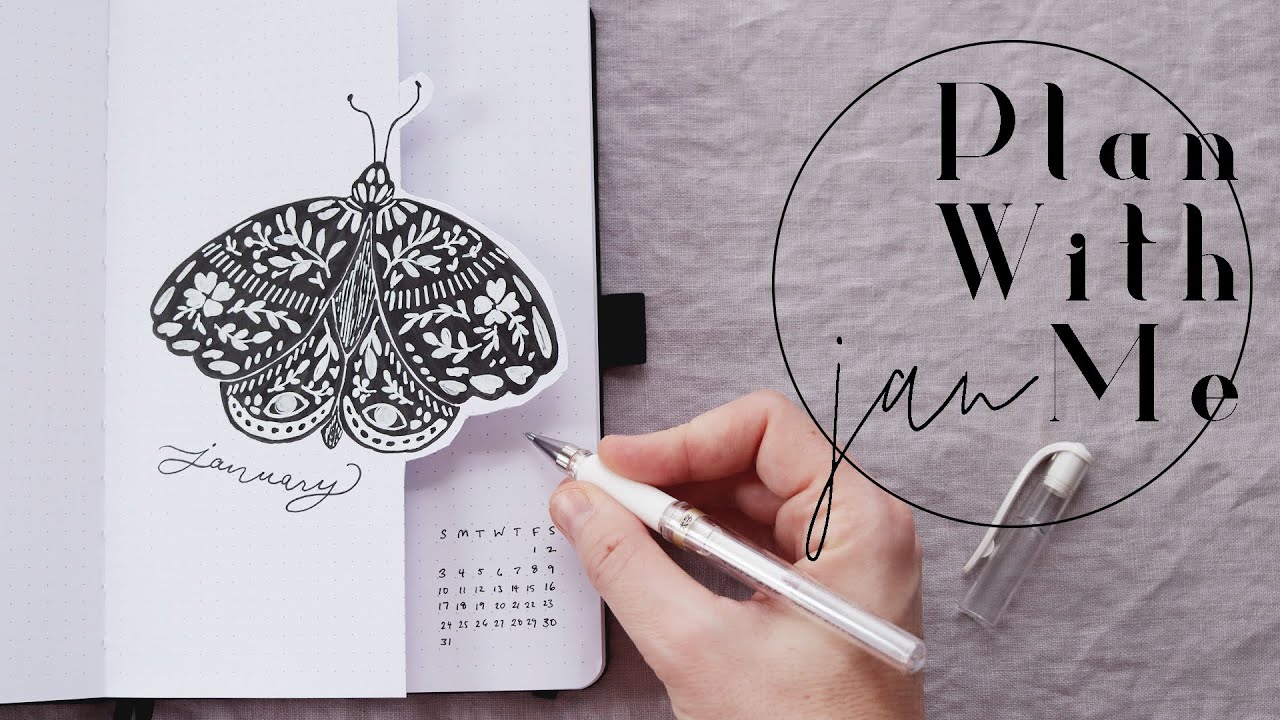 january
S M T W T F S
1 2
3 4 5 6 7 8 9
10 11 12 13 14 15 16
17 18 19 20 21 22 23
24 25 26 27 28 29 30
31
Plan
With
jan Me